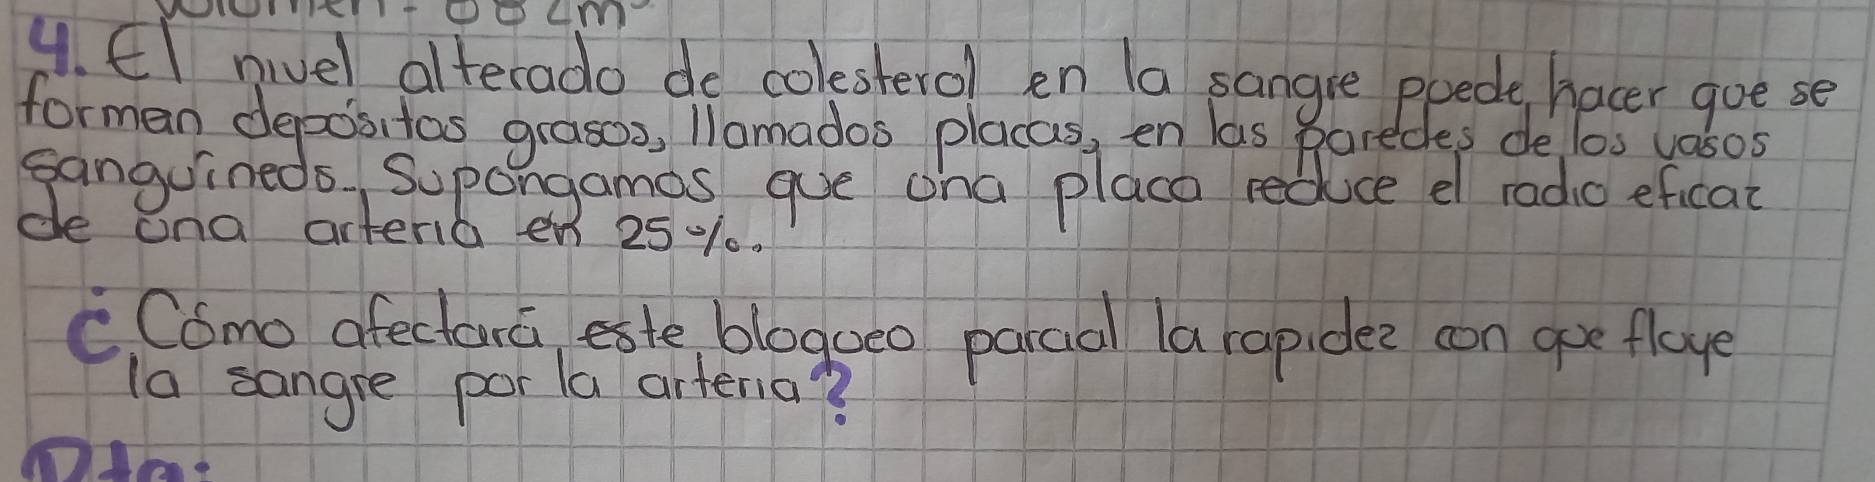 4. El nivel alterado de colesterol en la sangre puede hacer que se
formen depósitos grasos, llamados placas, en las paredes de los vasos
sanguíneos. Supongamos que una placa reduce el radio eficaz
de una arteria en 25%.
¿Cómo afectará este bloqueo parcial la rapidez con que fluye
la sangre por la arteria?